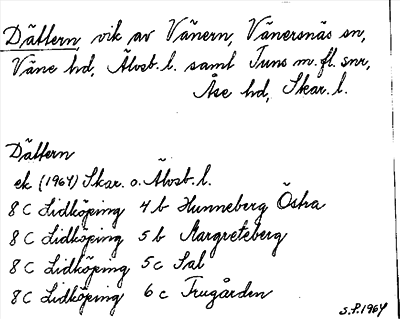 Dättern, vik av Vänern, Vänersnäs sn,
Väne hd, Älvsb. l. samt Tuns m. fl. snr,
Åse hd, Skar. l.
Dättern
ek (1964) Skar. o. Älvsb. l.
8 C Lidköping 4 b Hunneberg Östra
8 C Lidköping 5 b Margreteberg
8 C Lidköping 5 c Sal
8 C Lidköping 6 c Frugården
S.P. 1964